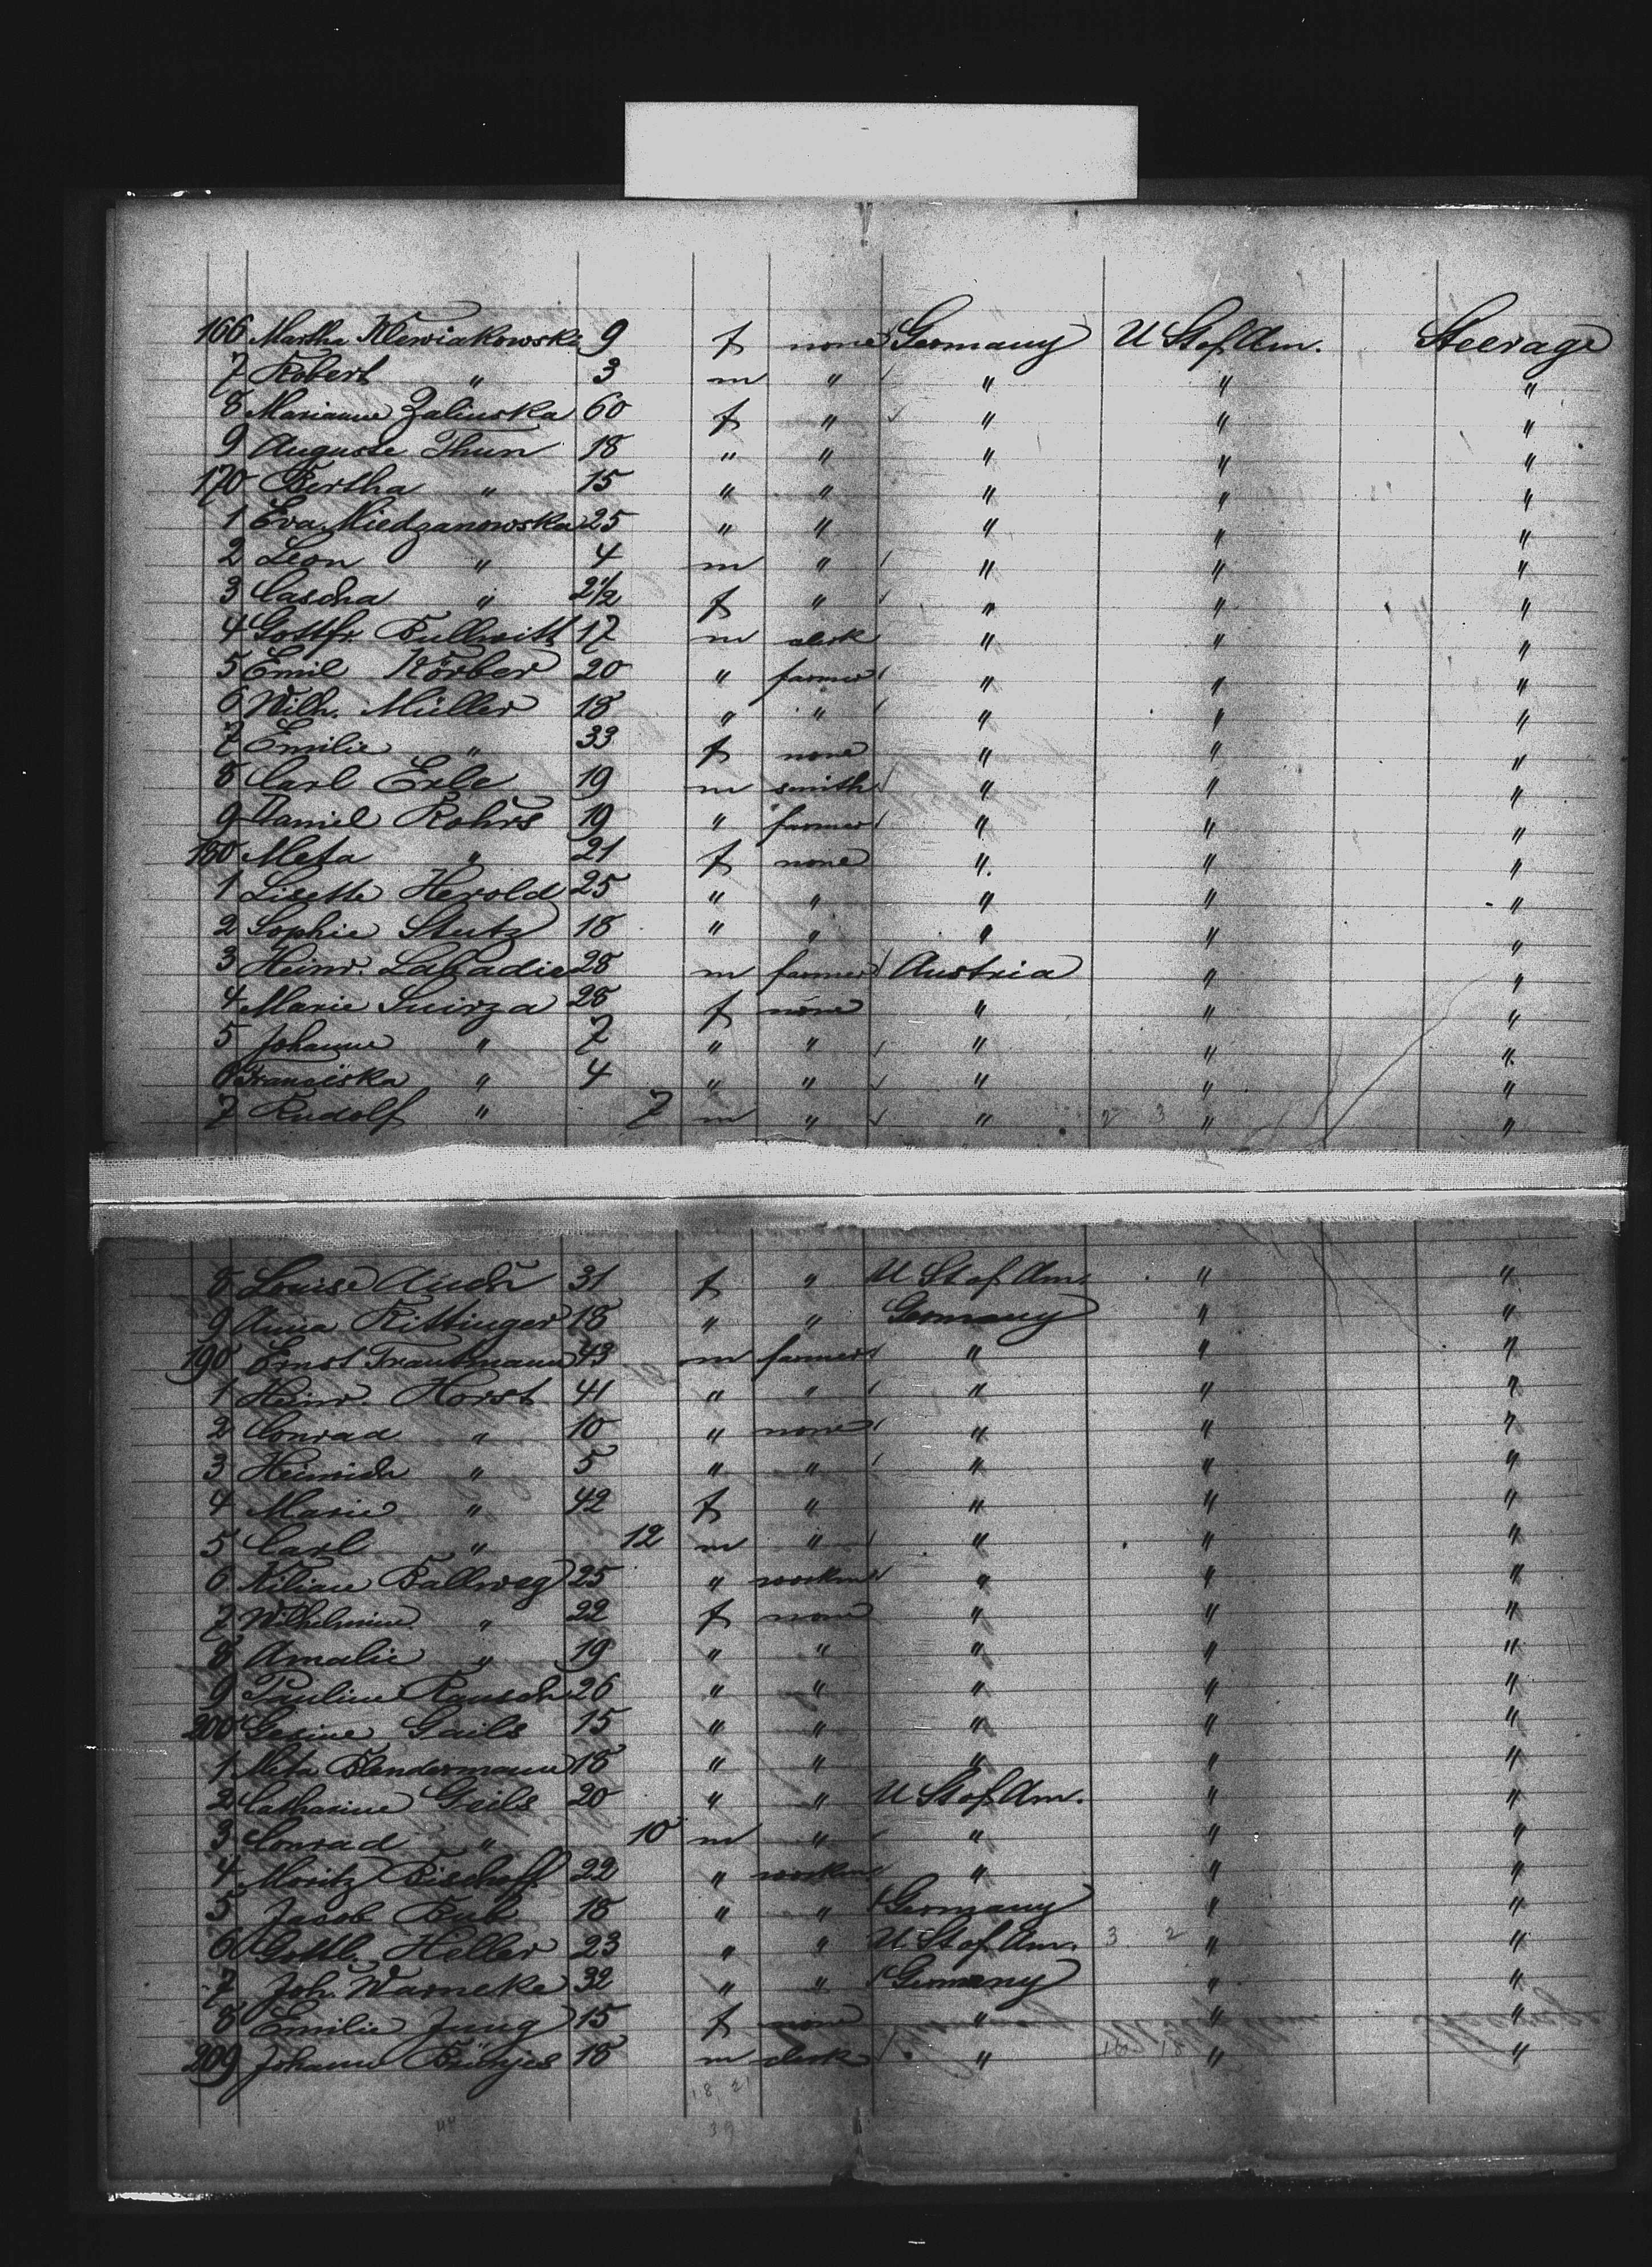 166 Martha Klewiakowska 9 f none Germany U St of Am. Steerage
7 Robert " 3 m " " " "
8 Marianne Zalinska 60 f " " " "
9 Auguste Thun 18 " " " " "
170 Bertha " 15 " " " " "
1 Eva Niedzanowska 25 " " " " "
2 Leon " 4 m " " " "
3 Cascha " 2 1/2 f " " " "
4 Gottfr. Bullwitt 17 m clerk " " "
5 Emil Körber 20 " farmer " " "
6 Wilh. Müller 18 " " " " "
7 Emilie " 33 f none " " "
8 Carl Erle 19 m smith " " "
9 Daniel Rohrs 19 " farmer " " "
180 Meta " 21 f none " " "
1 Lisette Herold 25 " " " " "
2 Sophie Stutz 18 " " " " "
3 Heinr. Labadie 28 m farmer Austria " "
4 Marie 28 f none " " "
5 Johanne " 7 " " " " "
6 Franciska " 4 " " " " "
7 Rudolf " 7 m " " 2 3 " "
8 Louise 31 f " U St of Am. " "
9 Anna Rittinger 18 " " Germany " "
190 Ernst Trautmann 43 m farmer " " "
1 Heinr. Horst 41 " " " " "
2 Conrad " 10 " none " " "
3 Heinrich " 5 " " " " "
4 Marie " 42 f " " " "
5 Carl " 12 m " " " "
6 Kilian Ballweg 25 " workm " " "
7 Wilhelmine " 22 f none " " "
8 Amalie " 19 " " " " "
9 Pauline Rausch 26 " " " " "
200 Gesine Gails 15 " " " " "
1 Meta Blendermann 18 " " " " "
2 Catharine Geils 20 " " U St of Am. " "
3 Conrad " 10 m " " " "
4 Moritz Bischoff 22 " workm " " "
5 Jacob Bub 18 " " Germany " "
6 Gottl. Heller 23 " " U St of Am. 3 2 " "
7 Joh. Warneke 32 " " Germany " "
8 Emilie Jung 15 f none " " "
209 Johann Bünjes 18 m clerk " " "
18 21
39